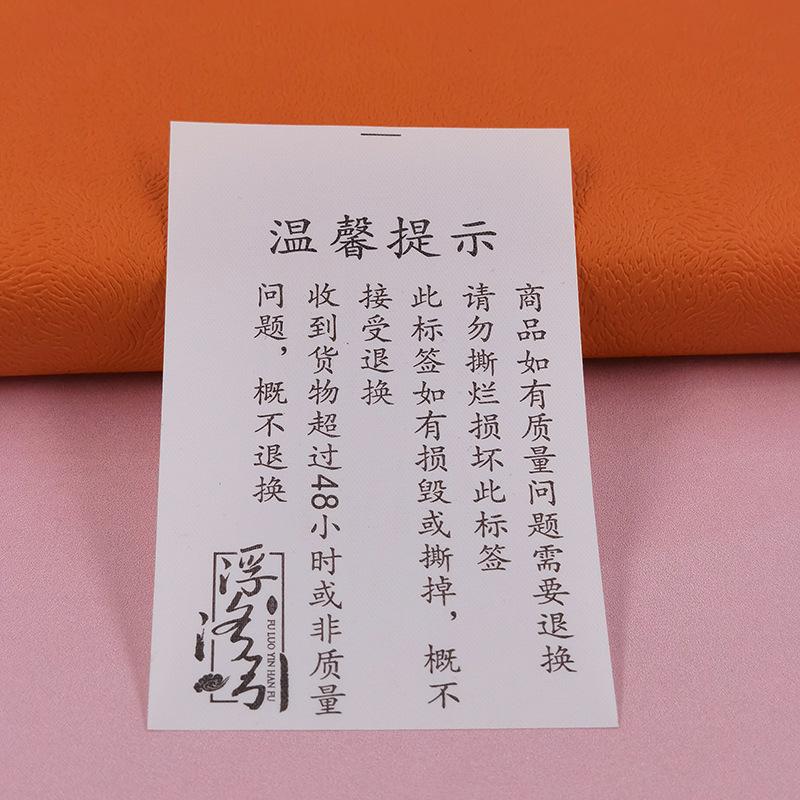 温馨提示
商品如有质量问题需要退换
请勿撕烂损坏此标签
此标签如有损毁或撕掉，概不
接受退换
收到货物超过48小时或非质量
问题，概不退换
浮洛吟
FU LUO YIN HAN FU